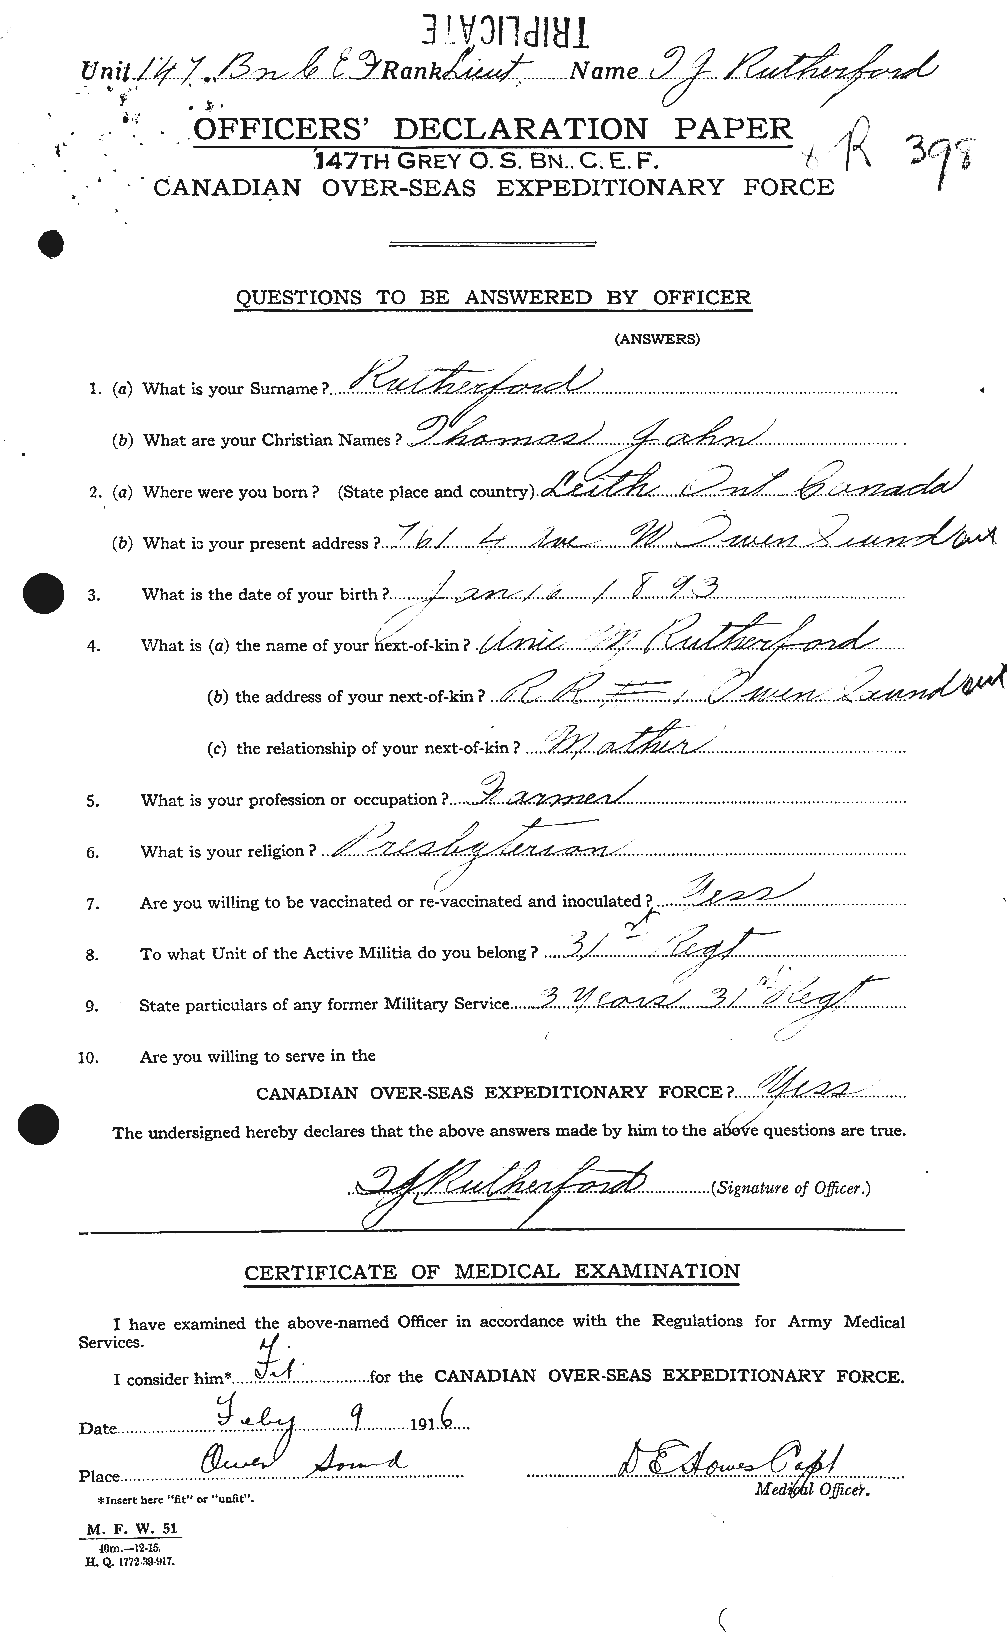 TRIPLICATE
Unit 147 Bn C E F Rank Lieut Name T J Rutherford
OFFICERS' DECLARATION PAPER
147TH GREY O. S. BN., C. E. F.
R 398
CANADIAN OVER-SEAS EXPEDITIONARY FORCE
QUESTIONS TO BE ANSWERED BY OFFICER
(ANSWERS)
1. (a) What is your Surname? Rutherford
(b) What are your Christian Names? Thomas John
2. (a) Where were you born? (State place and country) Leith Ont Canada
(b) What is your present address? 761 4 Ave W Owen Sound Ont
3. What is the date of your birth? Jan 16 1893
4. What is (a) the name of your next-of-kin? Anie M Rutherford
(b) the address of your next-of-kin? R R # 1 Owen Sound Ont
(c) the relationship of your next-of-kin? Mother
5. What is your profession or occupation? Farmer
6. What is your religion? Presbyterian
7. Are you willing to be vaccinated or re-vaccinated and inoculated? Yess
8. To what Unit of the Active Militia do you belong? 31st Regt
9. State particulars of any former Military Service 3 Years 31st Regt
10. Are you willing to serve in the
CANADIAN OVER-SEAS EXPEDITIONARY FORCE? Yess
The undersigned hereby declares that the above answers made by him to the above questions are true.
T J Rutherford (Signature of Officer.)
CERTIFICATE OF MEDICAL EXAMINATION
I have examined the above-named Officer in accordance with the Regulations for Army Medical
Services.
I consider him* Fit for the CANADIAN OVER-SEAS EXPEDITIONARY FORCE.
Date Feby 9 1916
Place Owen Sound D E Howes Capt
Medical Officer.
*Insert here "fit" or "unfit".
M. F. W. 51
40m.—12-15.
H. Q. 1772-39-917.